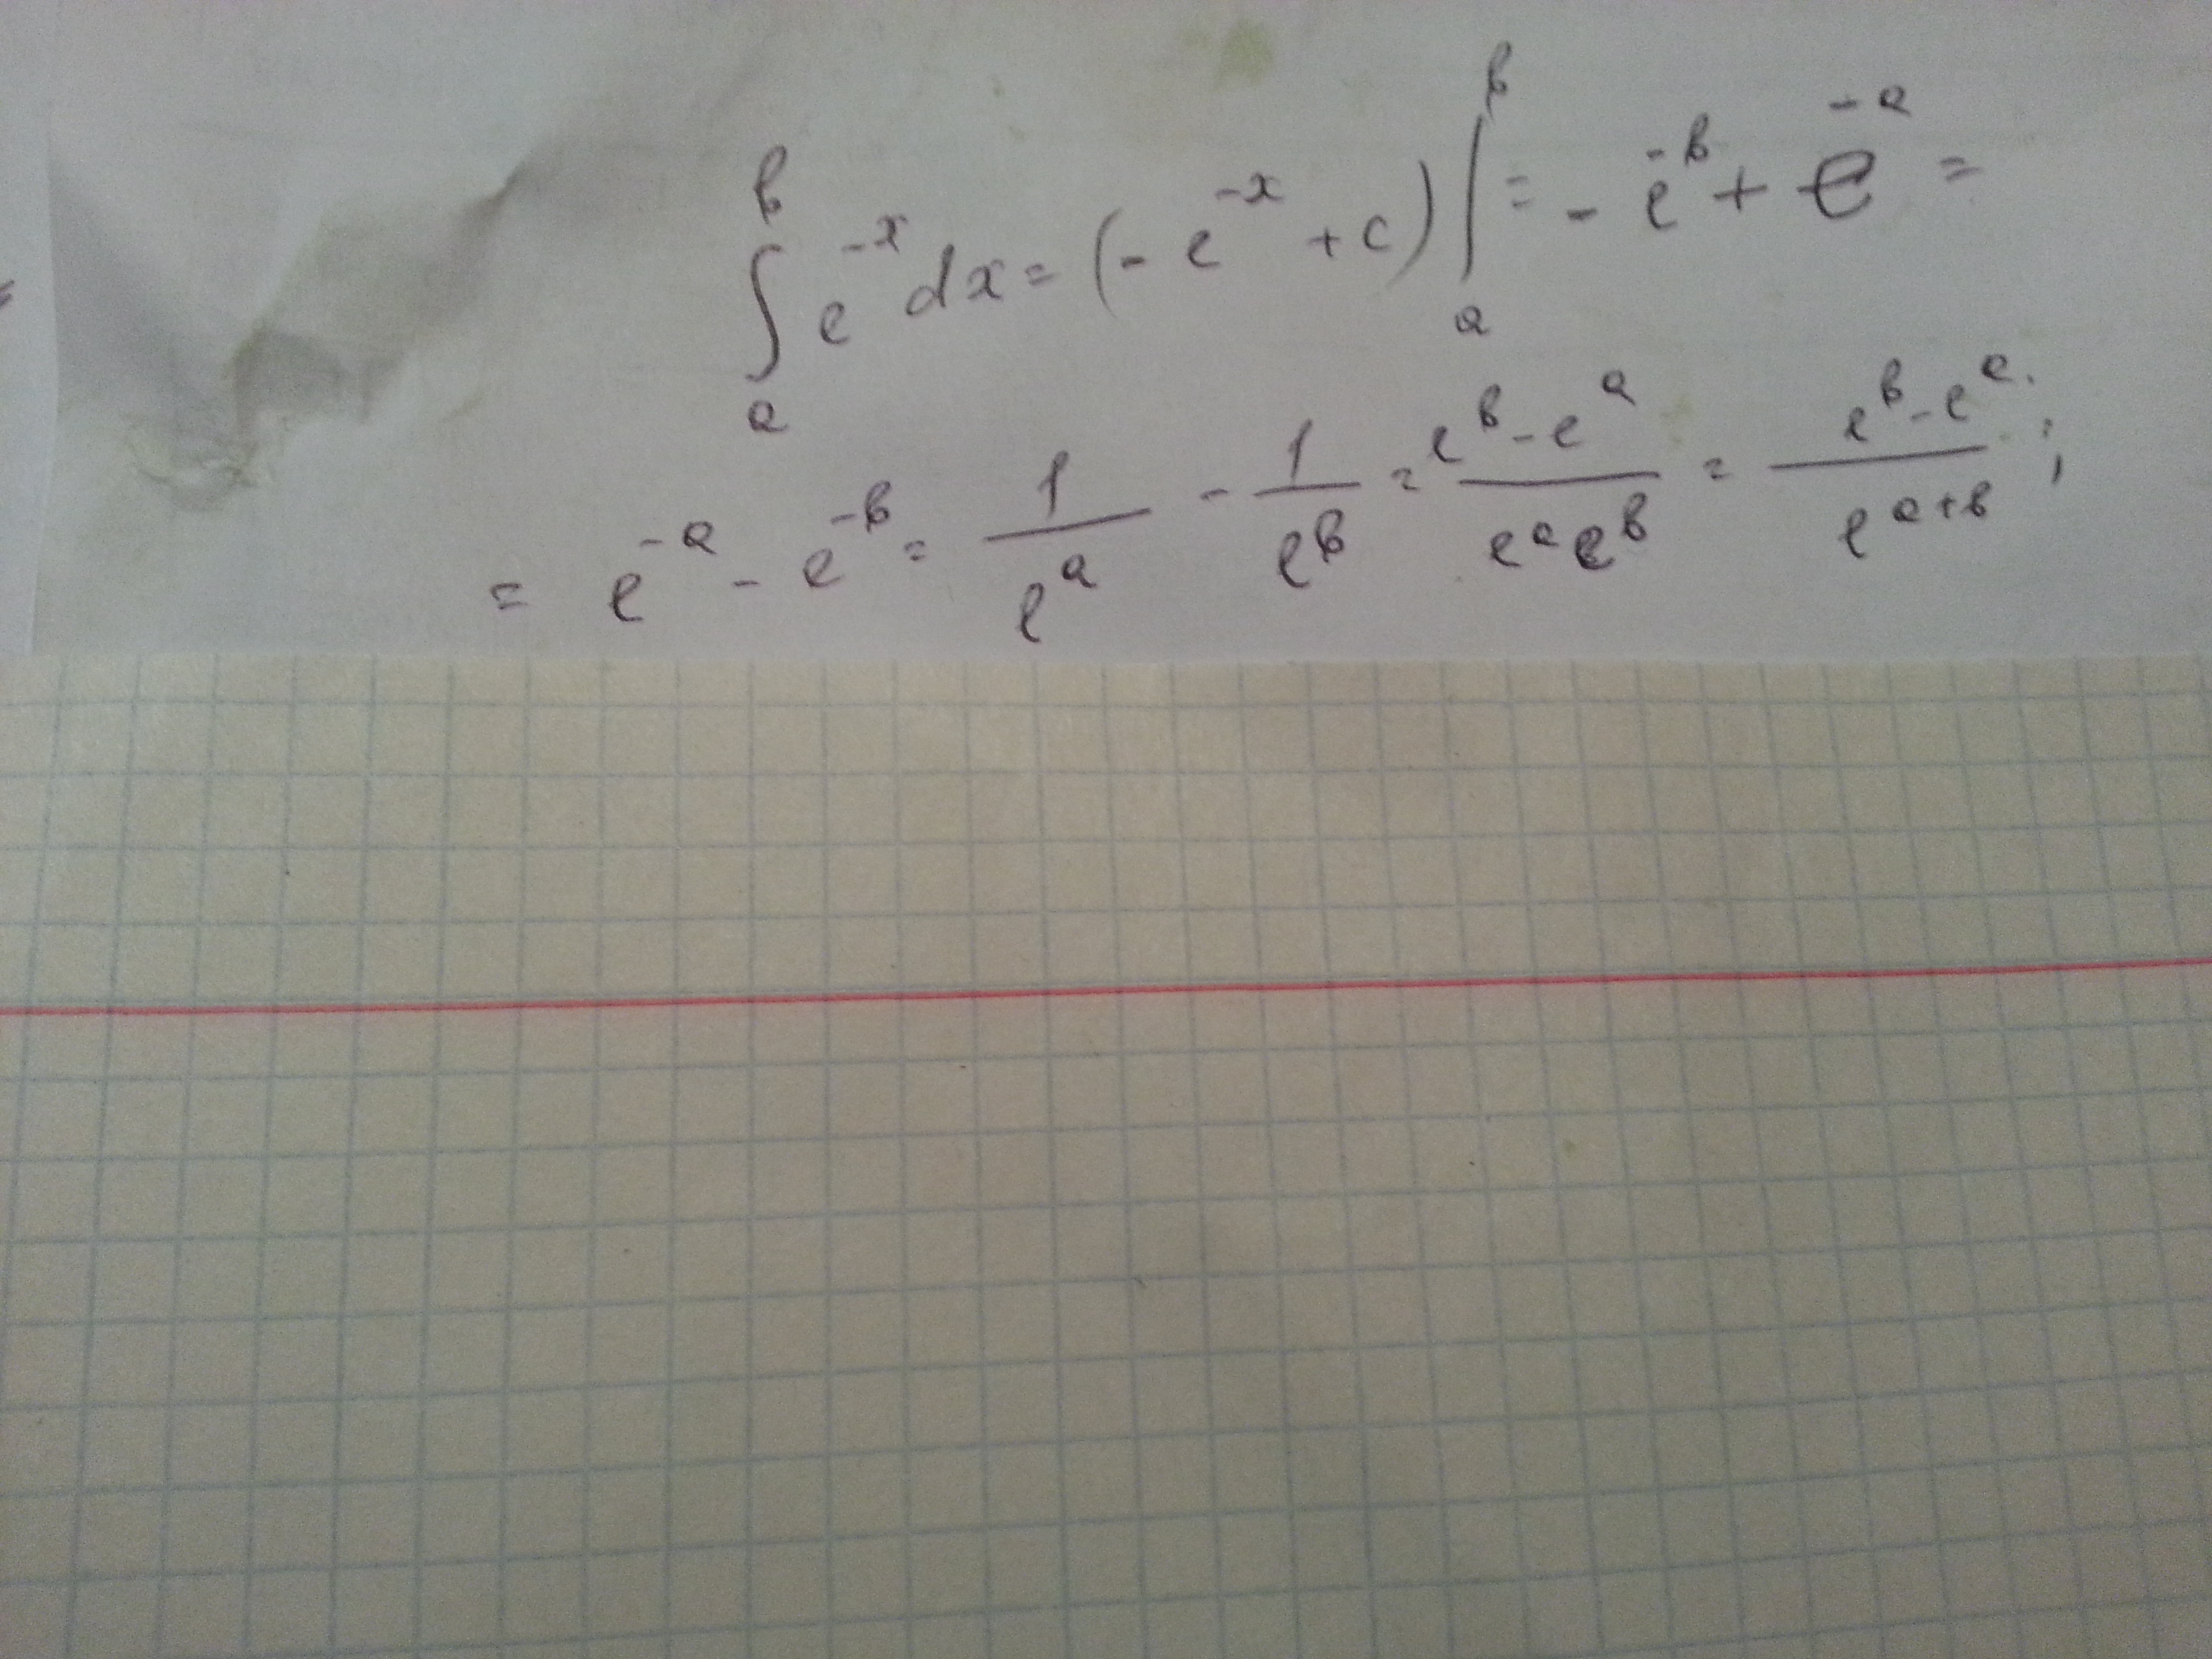 ∫_a^b e^{-x} dx = (- e^{-x} + c) |_a^b = - e^{-b} + e^{-a} =
= e^{-a} - e^{-b} = 1/e^a - 1/e^b = (e^b - e^a)/(e^a e^b) = (e^b - e^a)/(e^{a+b});